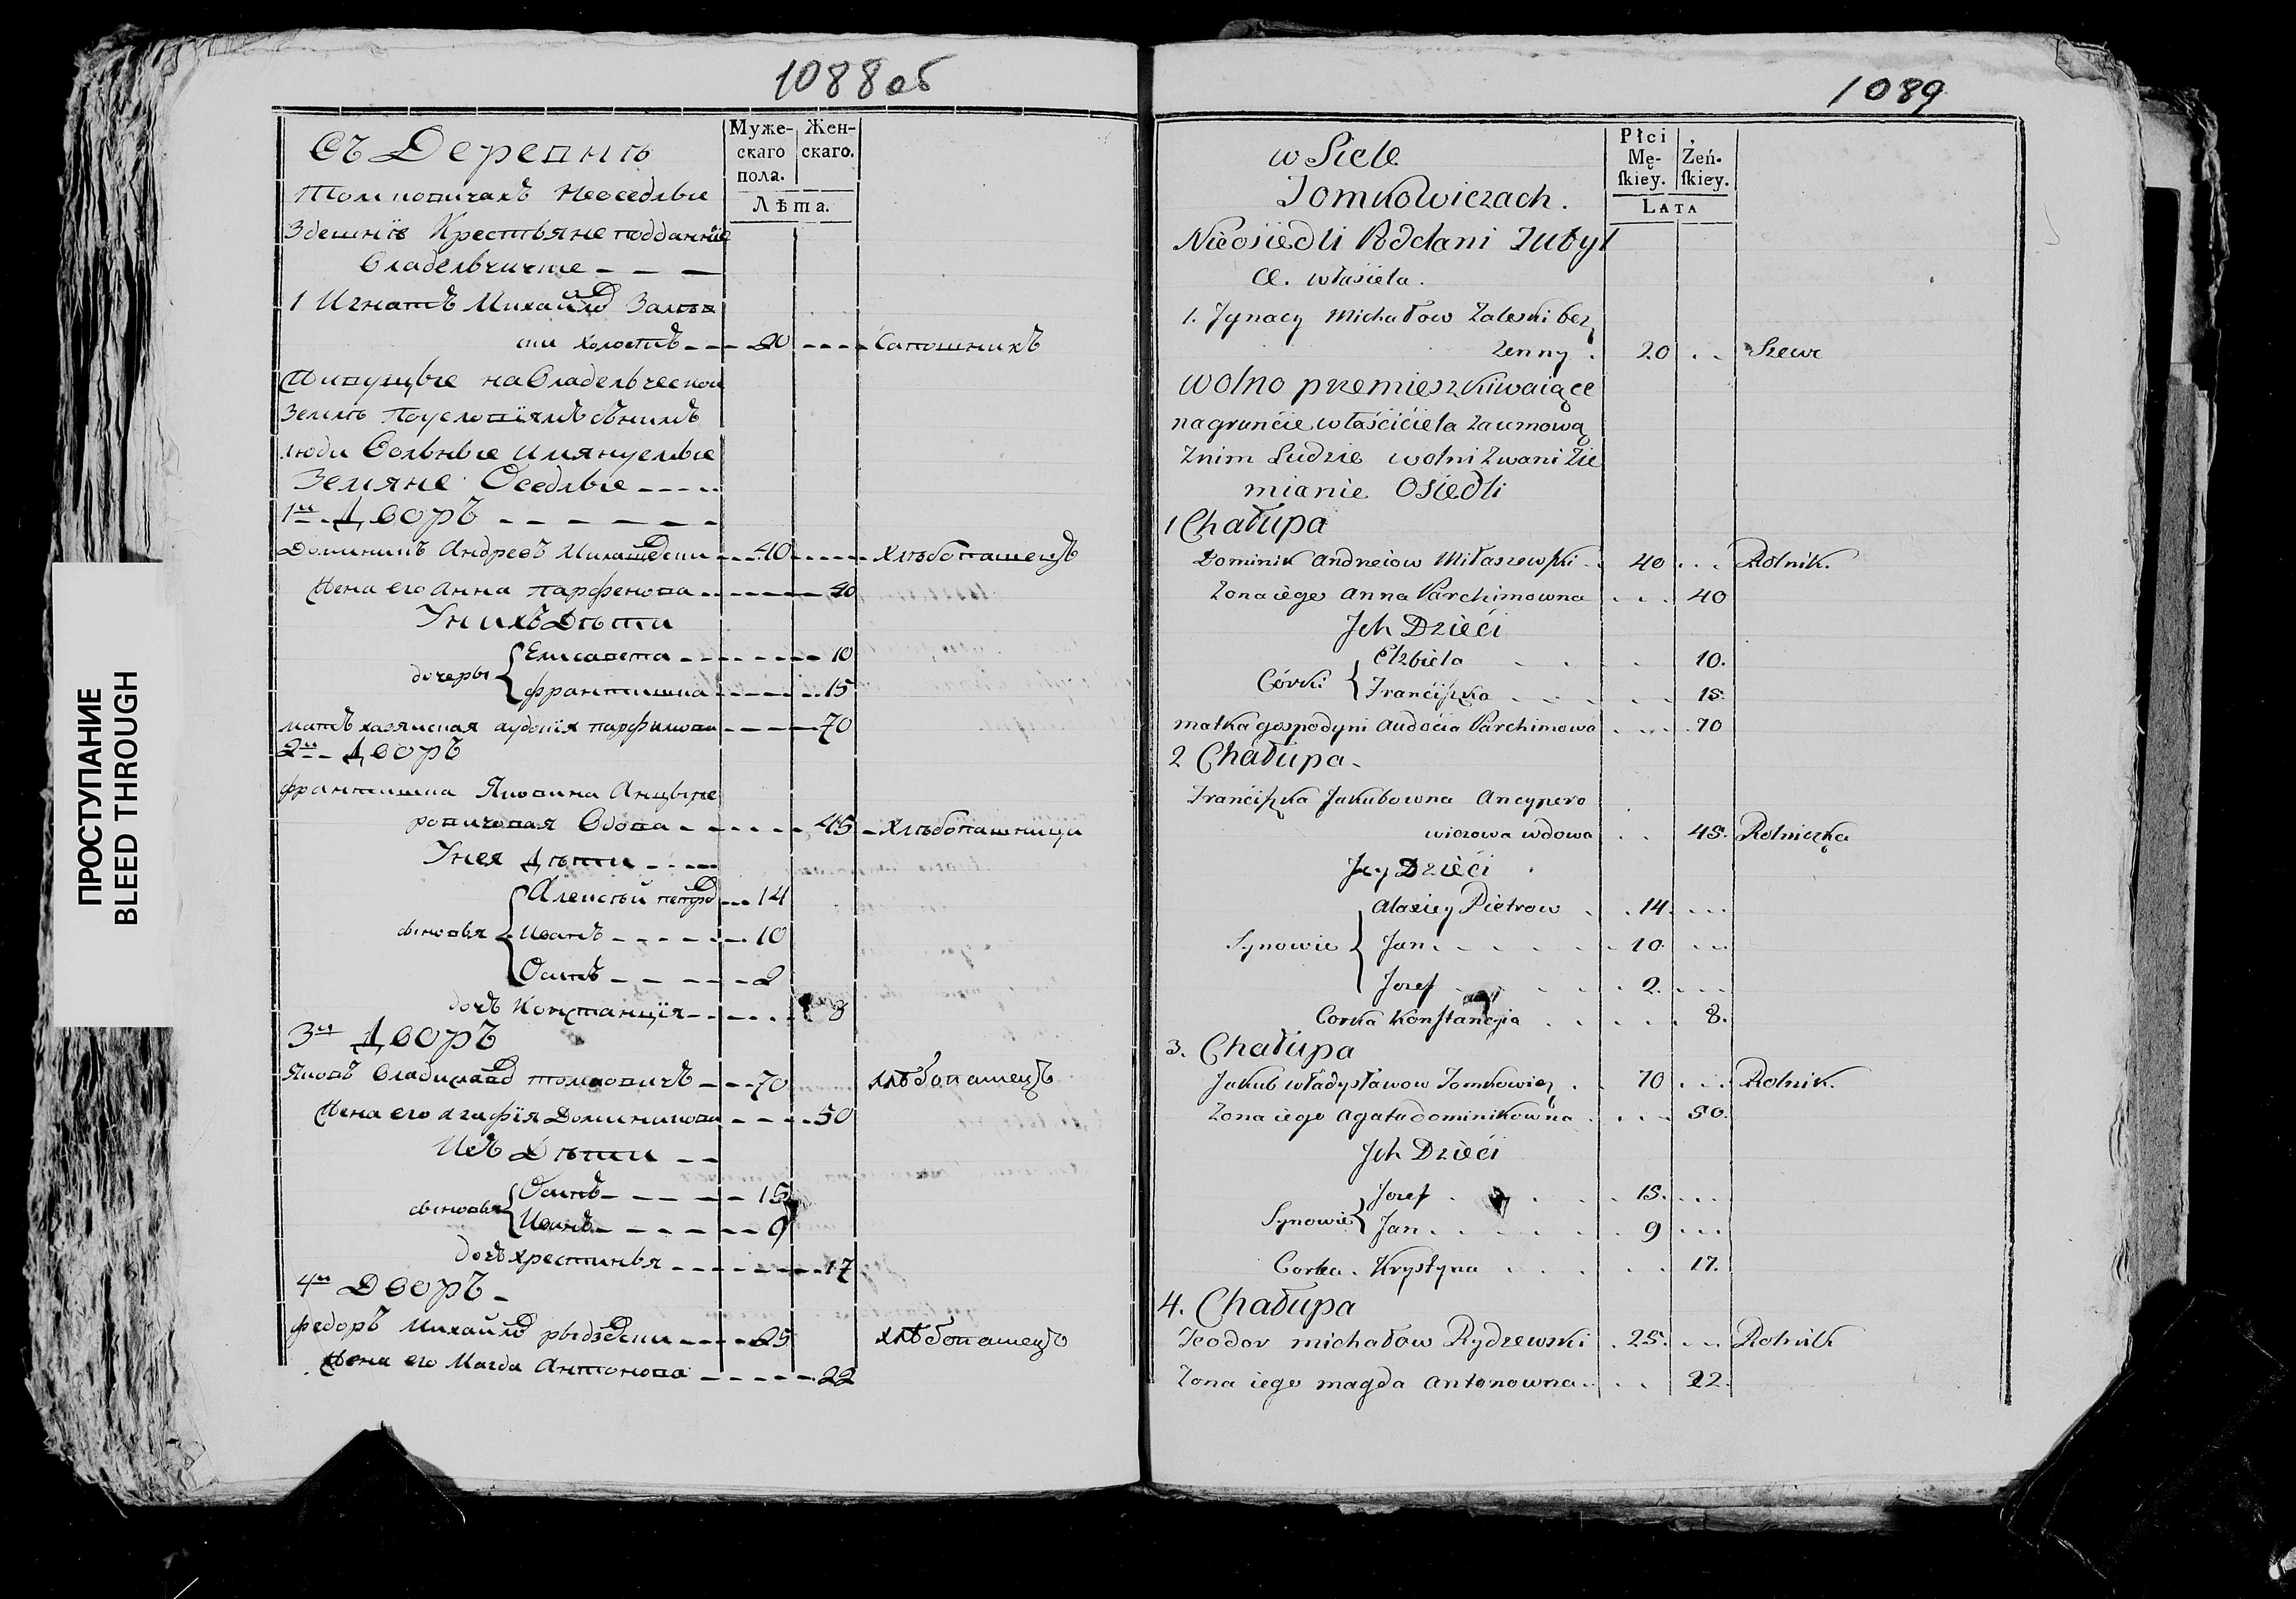 ПРОСТУПАНИЕ
BLEED THROUGH
1088 об
Муже-скаго пола.
Жен-скаго.
Лѣта.
Въ Деревнѣ
Томковичахъ Неоседлые
Здешнïе Крестьяне подданнïе
Владельческие
1 Игнатъ Михайловъ Залѣс
ки холостъ 20 Сапошникъ
Живущые на Владельческой
Землѣ По условïямъ сънимъ
люди Вольные имянуемые
Земяне Оседлые
1й Дворъ
Доминикъ Андреевъ Милашевски 40 хлѣбопашецъ
Жена его Анна Парфенова 40
У нихъ Дѣти
дочеры
Елисавета 10
Франтишка 15
мать хазяиская аудоцïя парфимова 70
2й Дворъ
франтишка Яковина Анцыпе
ровичовая Вдова 45 хлѣбопашница
У нея Дѣти
сыновья
Алексѣй петровъ 14
Иванъ 10
Осипъ 2
дочъ Констанцïя 8
3й Дворъ
Яковъ Владиславовъ томковичъ 70 хлѣбопашецъ
Жена его агафïя Доминикова 50
Ихъ Дѣти
сыновья
Осипъ 15
Иванъ 9
дочъ хрестинья 17
4й Дворъ
федоръ Михайловъ рыдзевски 25 хлѣбопашецъ
Жена его Магда Антонова 22
1089
Płci Mę-skiey.
Żeń-skiey.
LATA
w Siele
Tomkowiczach.
Nieosiedli Poddani Tutyl
Cl. własiela.
1. Jgnacy Michałow Zaleski bez
żenny 20 Szewc
wolno przemieszkiwaiące
na gruncie właściciela za umową
z nim Ludzie wolni zwani Zie
mianie Osiedli
1 Chałupa
Dominik Andrzeiow Miłaszewski 40 Rolnik.
Zona iego Anna Parchimowna 40
Jch Dzieci
Córki
Elzbieta 10.
Franciszka 15.
matka gospodyni Audocia Parchimowa 70
2 Chałupa
Franciszka Jakubowna Ancypero
wiczowa wdowa 45. Rolniczka
Jey Dzieci
Synowie
Alexiey Pietrow 14.
Jan 10.
Jozef 2.
Corka Konstancyia 8.
3. Chałupa
Jakub władysławow Tomkowicz 70 Rolnik.
Zona iego Agata dominikowna 50.
Jch Dzieci
Synowie
Jozef 15.
Jan 9
Corka Krystyna 17.
4. Chałupa
Teodor michałow Rydzewski 25. Rolnik
Zona iego magda antonowna 22.